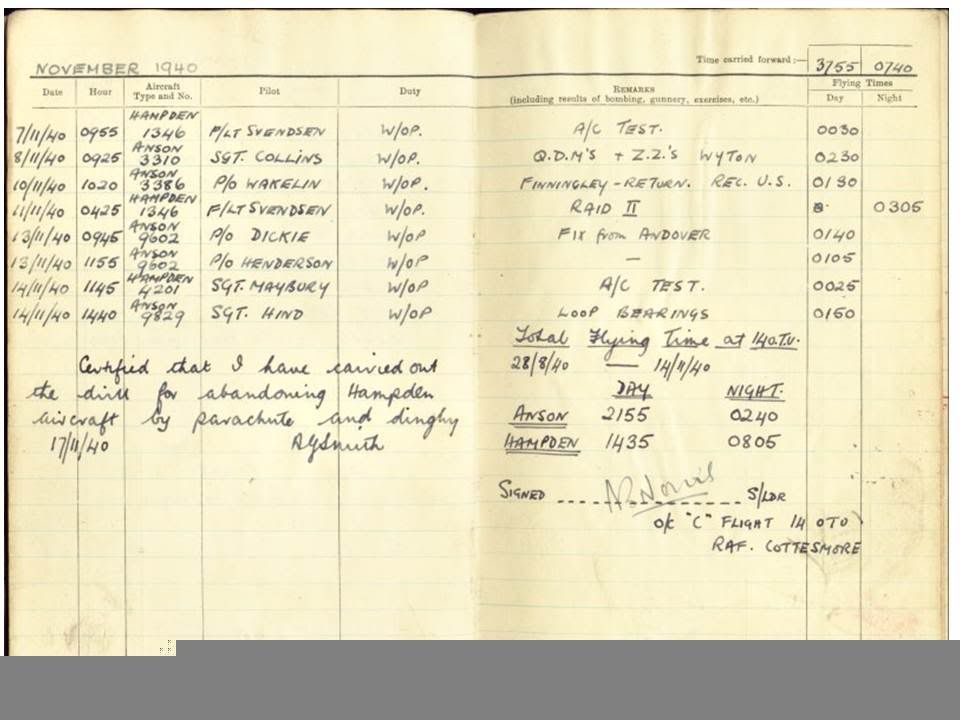 NOVEMBER 1940
Time carried forward :— 3755 0740
Date Hour Aircraft Type and No. Pilot Duty REMARKS (including results of bombing, gunnery, exercises, etc.) Flying Times Day Night
7/11/40 0955 HAMPDEN 1346 F/LT SVENDSEN W/OP. A/C TEST. 0030
8/11/40 0925 ANSON 3310 SGT. COLLINS W/OP. Q.D.M'S + Z.Z.'S WYTON 0230
10/11/40 1020 ANSON 3386 P/O WAKELIN W/OP. FINNINGLEY - RETURN. REC. U.S. 0130
11/11/40 0425 HAMPDEN 1346 F/LT SVENDSEN W/OP. RAID II 0305
13/11/40 0945 ANSON 9602 P/O DICKIE W/OP FIX from ANDOVER 0140
13/11/40 1155 ANSON 9602 P/O HENDERSON W/OP — 0105
14/11/40 1145 HAMPDEN 4201 SGT. MAYBURY W/OP A/C TEST. 0025
14/11/40 1440 ANSON 9829 SGT. HIND W/OP LOOP BEARINGS 0150
Certified that I have carried out
the drill for abandoning Hampden
aircraft by parachute and dinghy
17/11/40 AGSmith
Total Flying Time at 14 O.T.U.
28/8/40 — 14/11/40
DAY NIGHT.
ANSON 2155 0240
HAMPDEN 1435 0805
SIGNED S/LDR
O/C "C" FLIGHT 14 OTU
RAF. COTTESMORE